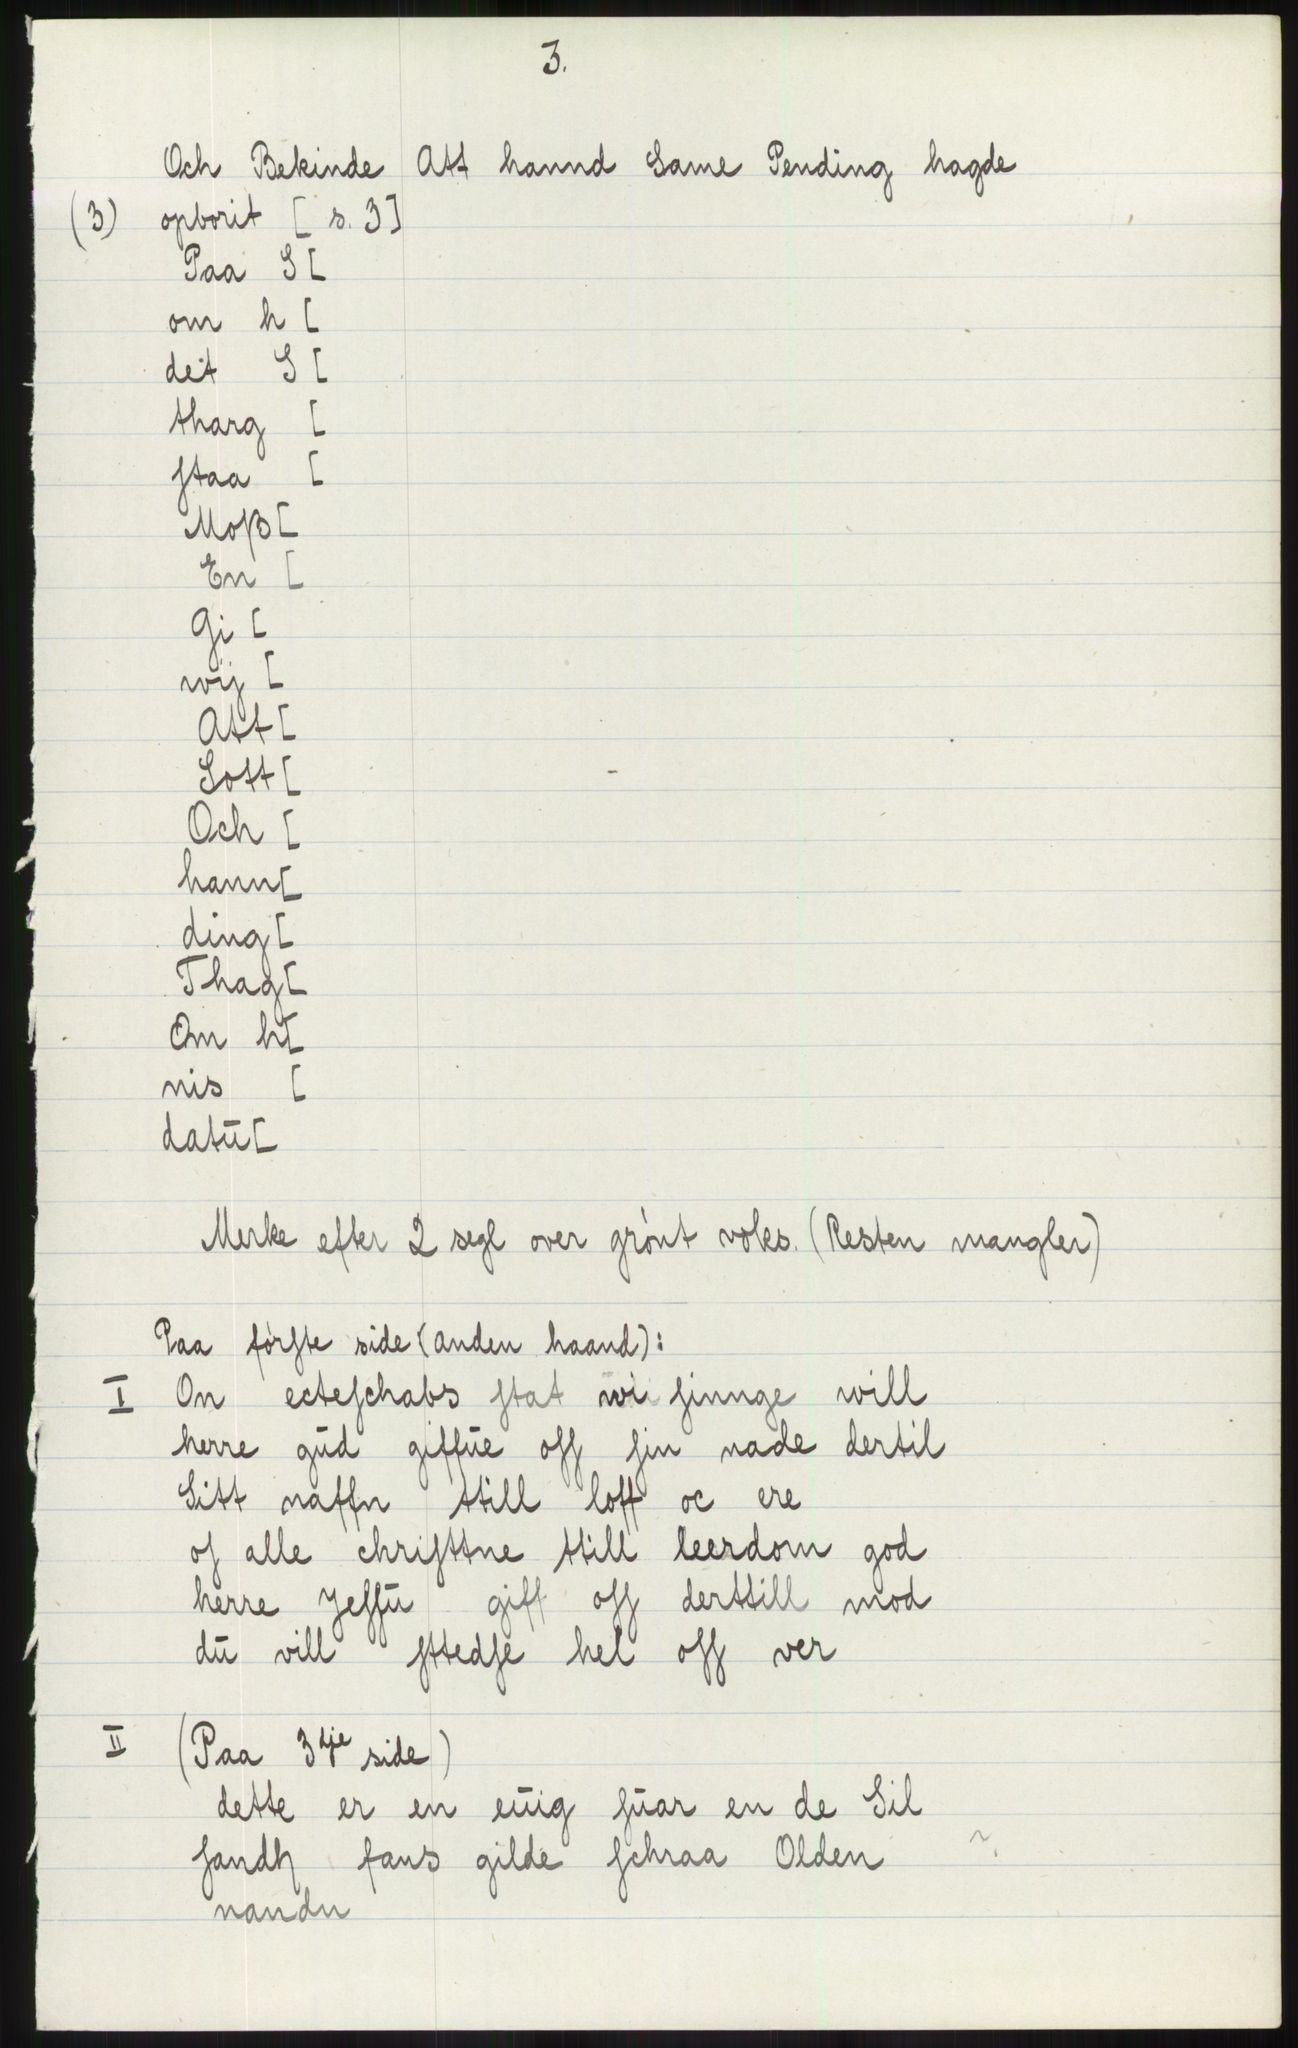 3.
Och Bekinde Att hannd Same Pending hagde
(3) opborit [ s. 3]
Paa S [
om h [
deit S [
tharg [
ſtaa [
Moß [
En [
Gi [
wij [
Att [
Sott [
Och [
hann [
ding [
Thag [
Om h [
nis [
datū [
Merke efter 2 segl over grønt voks. (Resten mangler)
Paa førſte side (anden haand):
I On ecteſchabs ſtat wi ſinnge will
herre gūd giffūe oſſ ſin nade dertil
Sitt naffn ttill loff oc ere
oſ alle chriſttne ttill leerdom god
herre Jeſſū giff oſſ derttill mod
dū vill ſttedſe hel oſſ ver
II (Paa 3dje side)
dette er en eūig ſūar en de Sil
ſandh fans gilde ſchraa Olden ?
nandn